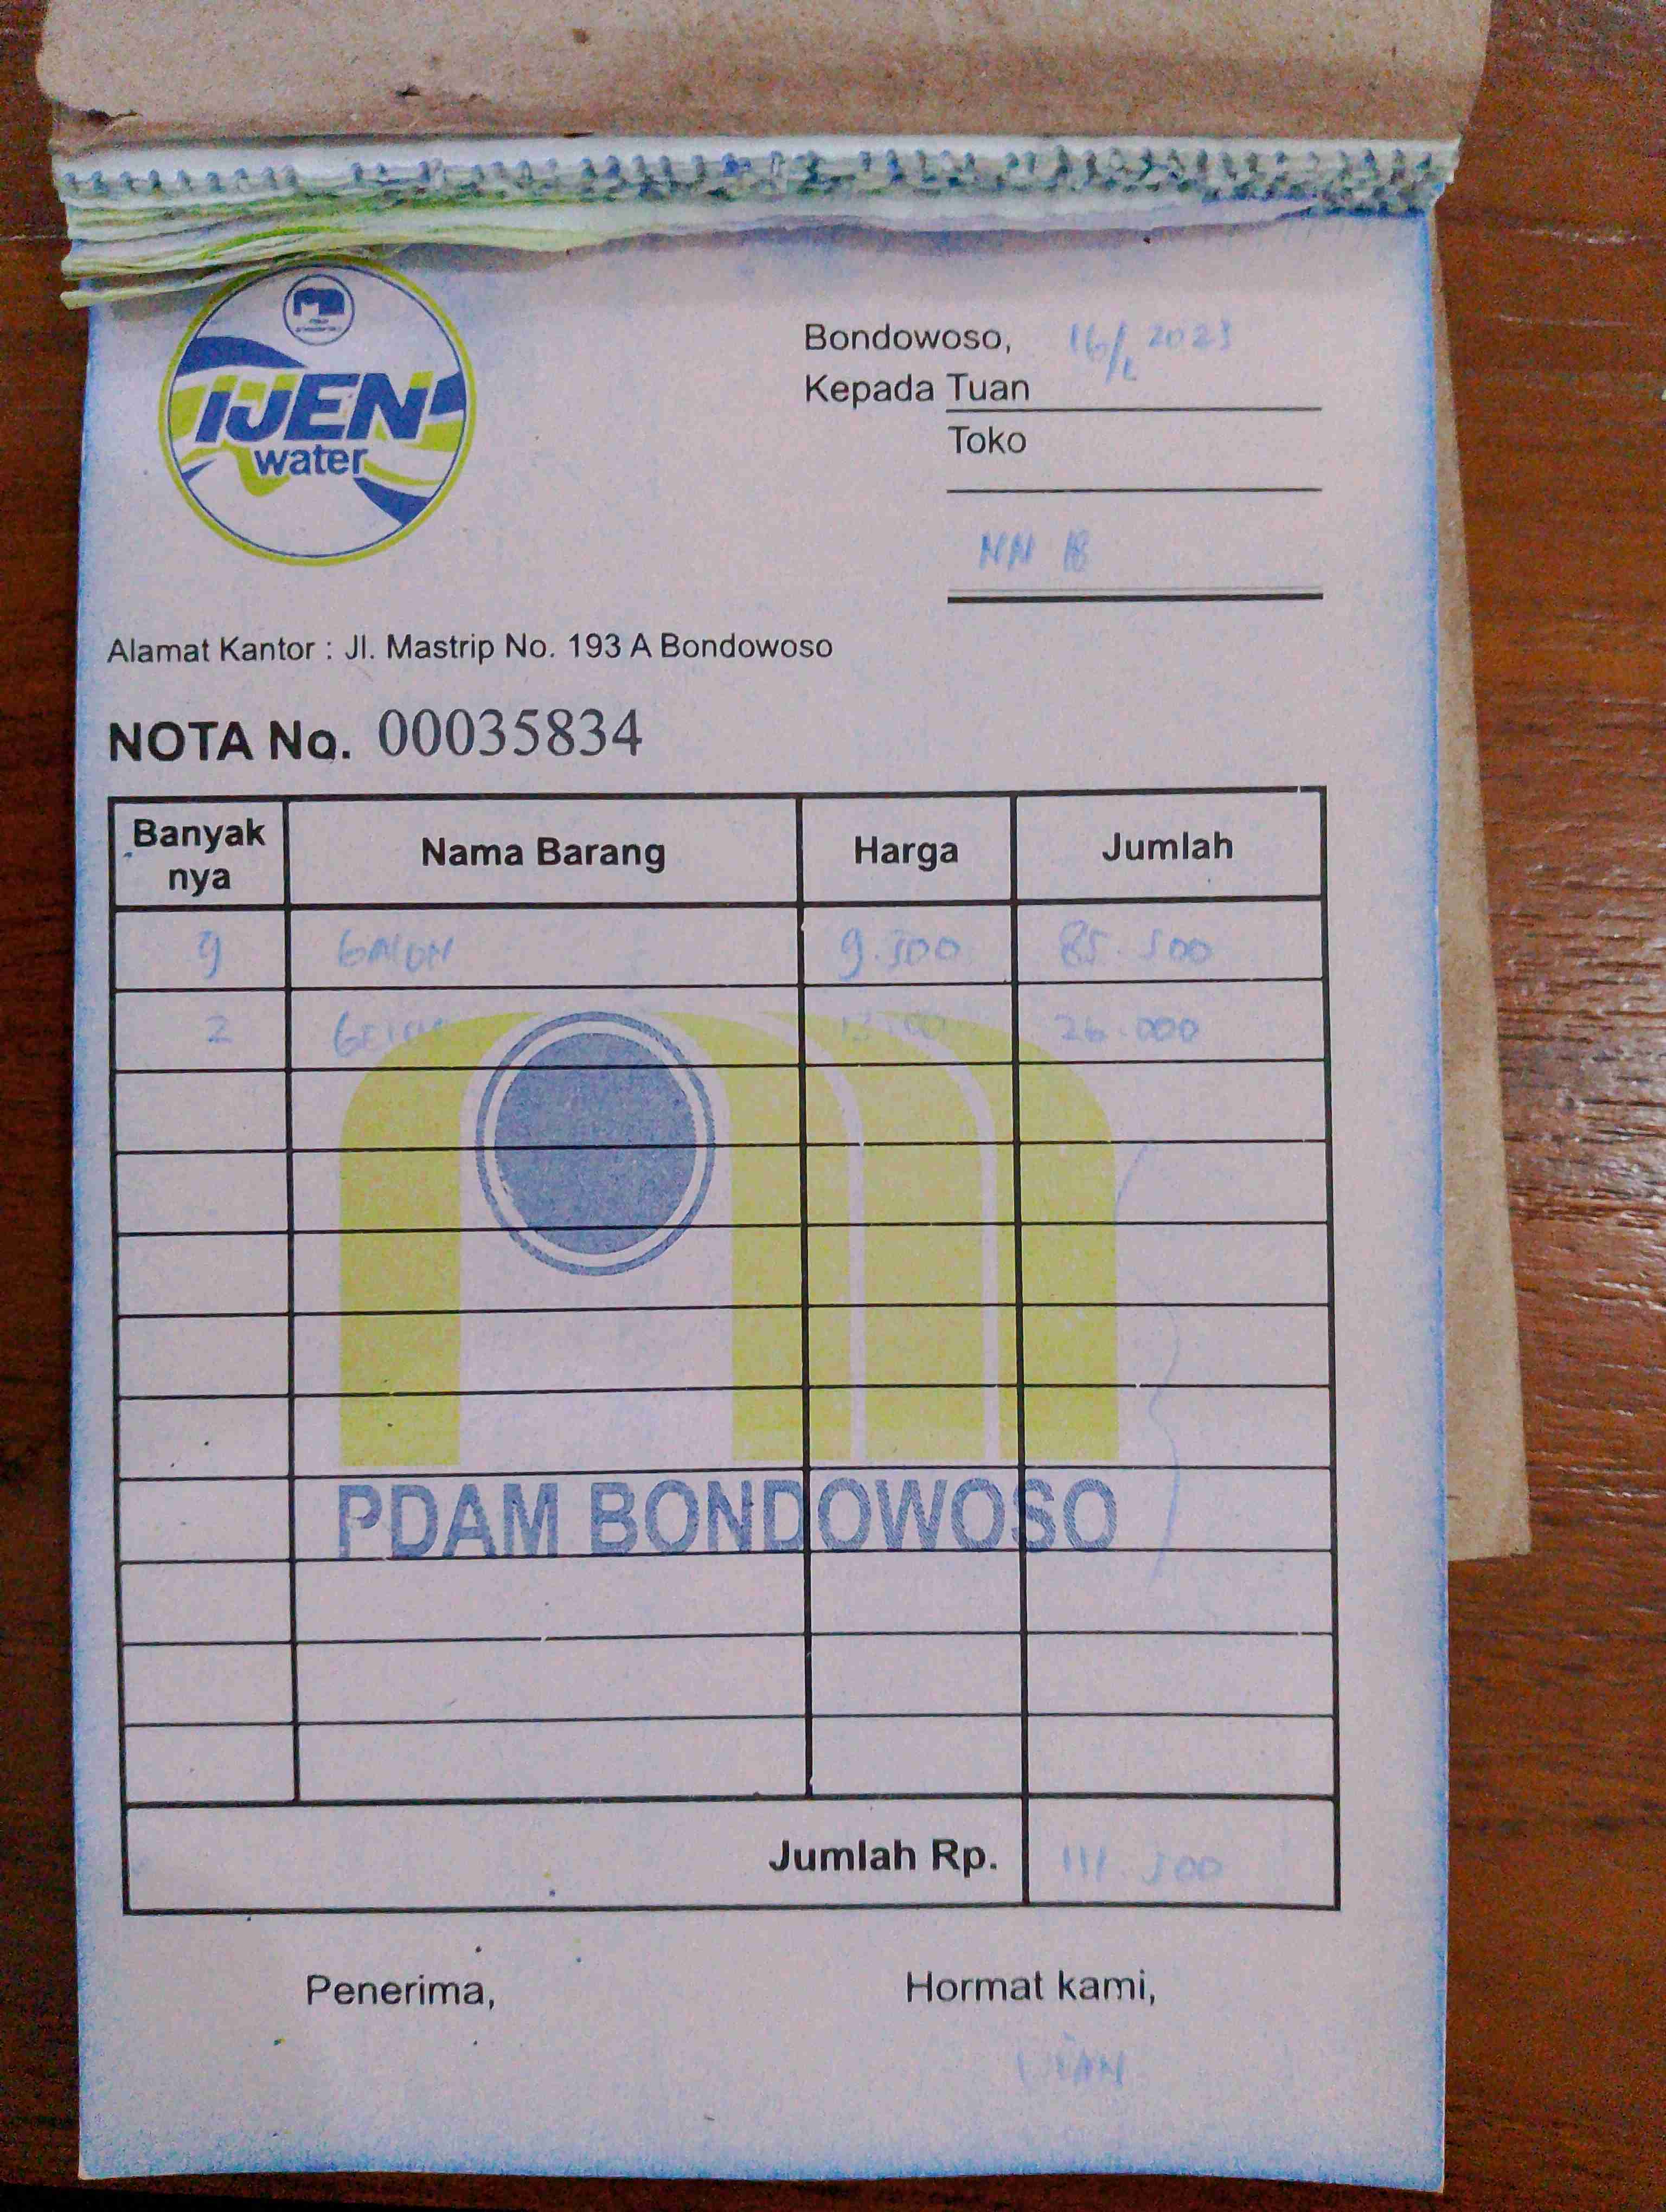 IJEN
water
Bondowoso, 16/ 2023
Kepada Tuan
Toko
NN 18
Alamat Kantor : Jl. Mastrip No. 193 A Bondowoso
NOTA No. 00035834
Banyak nya Nama Barang Harga Jumlah
9 GALON 9.500 85.500
2 26.000
PDAM BONDOWOSO
Jumlah Rp. 111.500
Penerima, Hormat kami,